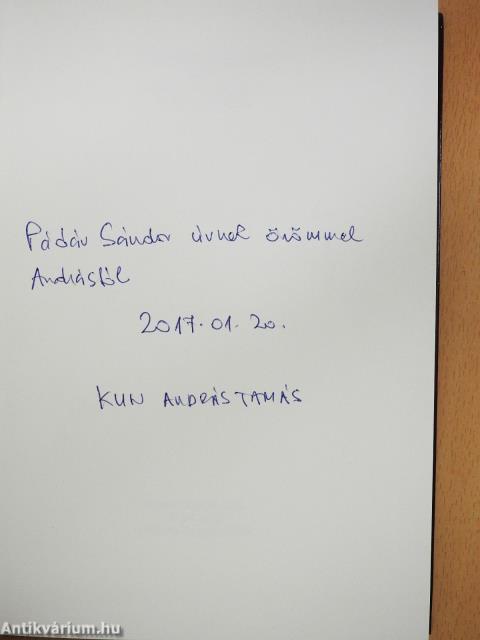 Pádár Sándor úrnek örömmel
Andrástól
2017.01.20.
KUN ANDRÁS TAMÁS
Antikvárium.hu